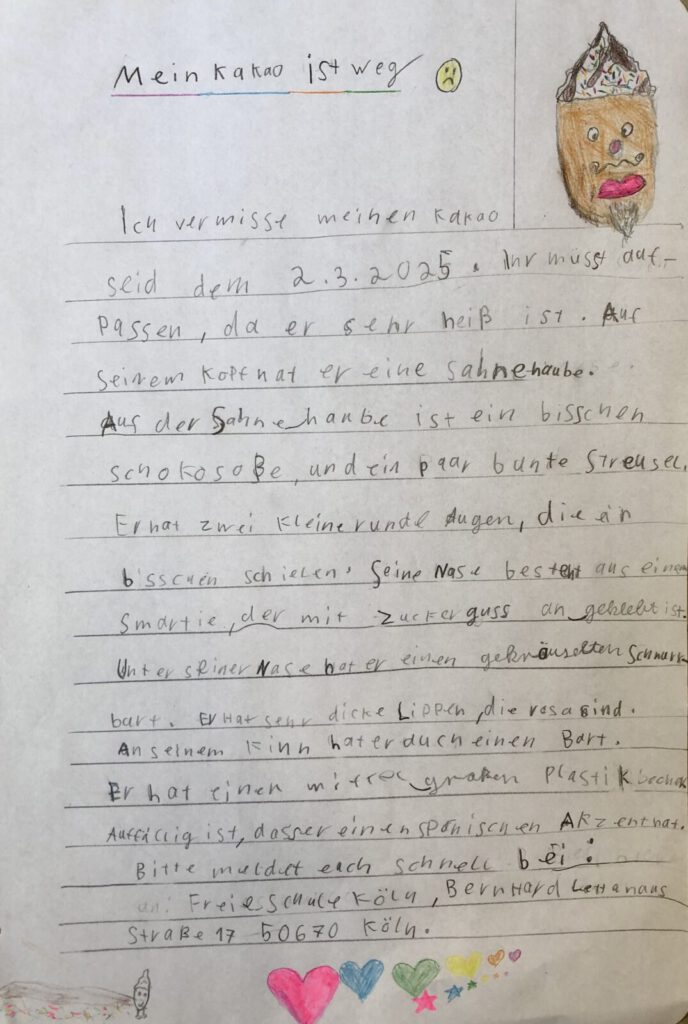 Mein Kakao ist weg
Ich vermisse meinen Kakao
seid dem 2.3.2025. Ihr müsst auf-
passen, da er sehr heiß ist. Auf
seinem Kopf hat er eine Sahnehaube.
Auf der Sahnehaube ist ein bisschen
Schokosoße, und ein paar bunte Streusel.
Er hat zwei kleine runde Augen, die ein
bisschen schielen. Seine Nase besteht aus einem
Smartie, der mit Zuckerguss an geklebt ist.
Unter seiner Nase hat er einen gekräuselten Schnurr
bart. Er hat sehr dicke Lippen, die rosa sind.
An seinem Kinn hat er duch einen Bart.
Er hat einen mittel großen Plastikbecher
Auffällig ist, dass er einen spanischen Akzent hat.
Bitte meldet euch schnell bei:
Freie Schule Köln, Bernhard
Straße 17 50670 Köln.